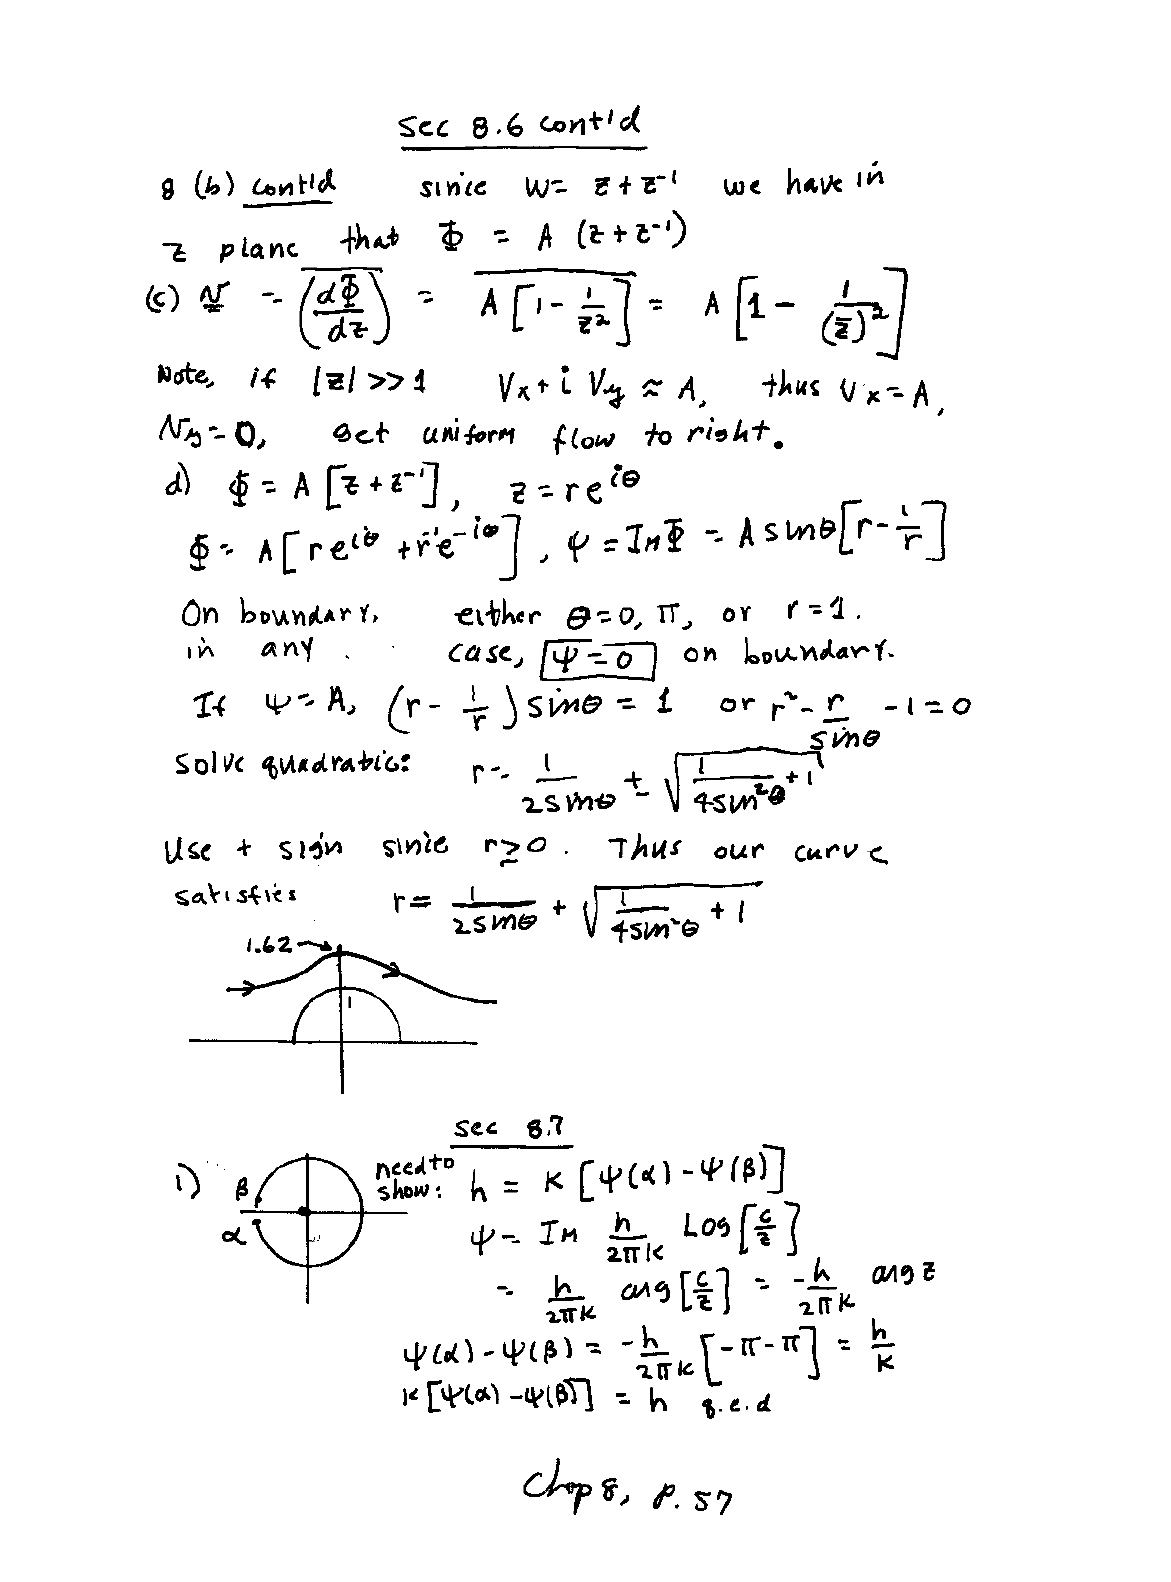 Sec 8.6 cont'd
8 (b) cont'd since w = z + z⁻¹ we have in
z plane that Φ = A (z + z⁻¹)
(c) v = \overline{(dΦ/dz)} = \overline{A [1 - 1/z²]} = A [1 - 1/(z̄)²]
Note, if |z| >> 1 Vx + i Vy ≈ A, thus Vx = A,
Vy = 0, Get uniform flow to right.
d) Φ = A [z + z⁻¹], z = re^{iθ}
Φ = A [re^{iθ} + r⁻¹e^{-iθ}], ψ = Im Φ = A sinθ [r - 1/r]
On boundary, either θ = 0, π, or r = 1.
in any case, ψ = 0 on boundary.
If ψ = A, (r - 1/r) sinθ = 1 or r² - r/sinθ - 1 = 0
Solve quadratic: r = 1/(2 sinθ) ± √(1/(4 sin²θ) + 1)
Use + sign since r ≥ 0. Thus our curve
satisfies r = 1/(2 sinθ) + √(1/(4 sin²θ) + 1)
1.62
1
Sec 8.7
1) β α need to show: h = k [ψ(α) - ψ(β)]
ψ = Im h/(2πk) Log [c/z]
= h/(2πk) arg [c/z] = -h/(2πk) arg z
ψ(α) - ψ(β) = -h/(2πk) [-π - π] = h/k
k [ψ(α) - ψ(β)] = h q.e.d
Chap 8, p. 57